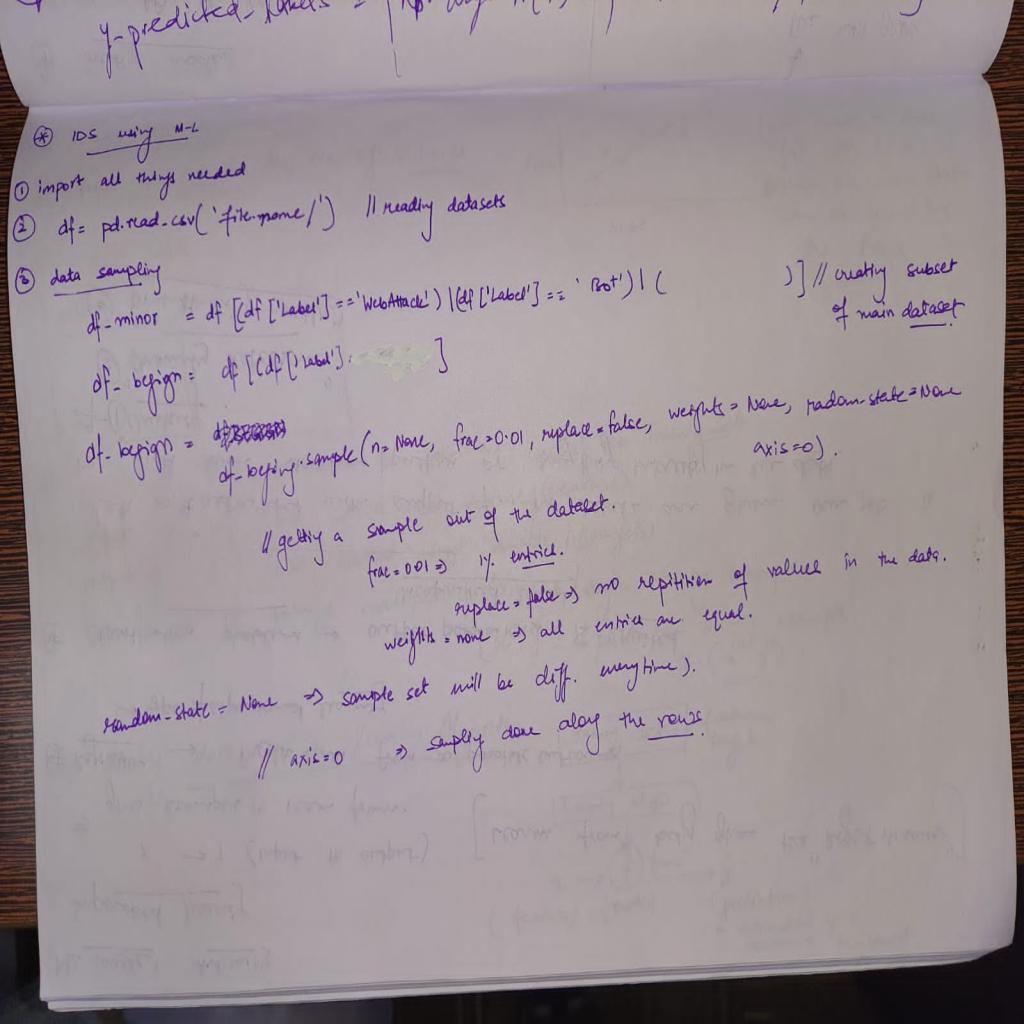 y-predicted_labels =
⊛ IDS using M-L
① import all things needed
② df = pd.read_csv('file.name/') // reading datasets
③ data sampling
df-minor = df [(df ['Label'] == 'WebAttack') | (df ['Label'] == 'Bot') | ( )] // creating subset
of main dataset
df- begign = df [(df ['Label']. ]
df- begign =
df-beging.sample (n = None, frac = 0.01, replace = false, weights = None, radom-state = None
axis=0).
// getting a sample out of the dataset.
frac = 0.01 ⇒ 1% entries.
replace = false ⇒ no repitition of values in the data.
weights = none ⇒ all entries are equal.
random-state = None ⇒ sample set will be diff. everytime).
// axis=0 ⇒ sampling done along the rows.